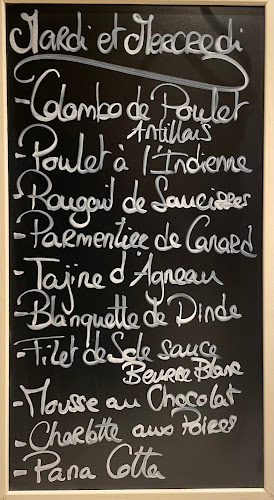 Mardi et Mercredi
- Colombo de Poulet
Antillais
- Poulet à l'Indienne
- Rougail de Saucisses
- Parmentier de Canard
- Tajine d'Agneau
- Blanquette de Dinde
- Filet de Sole sauce
Beurre Blanc
- Mousse au Chocolat
- Charlotte aux Poires
- Pana Cotta